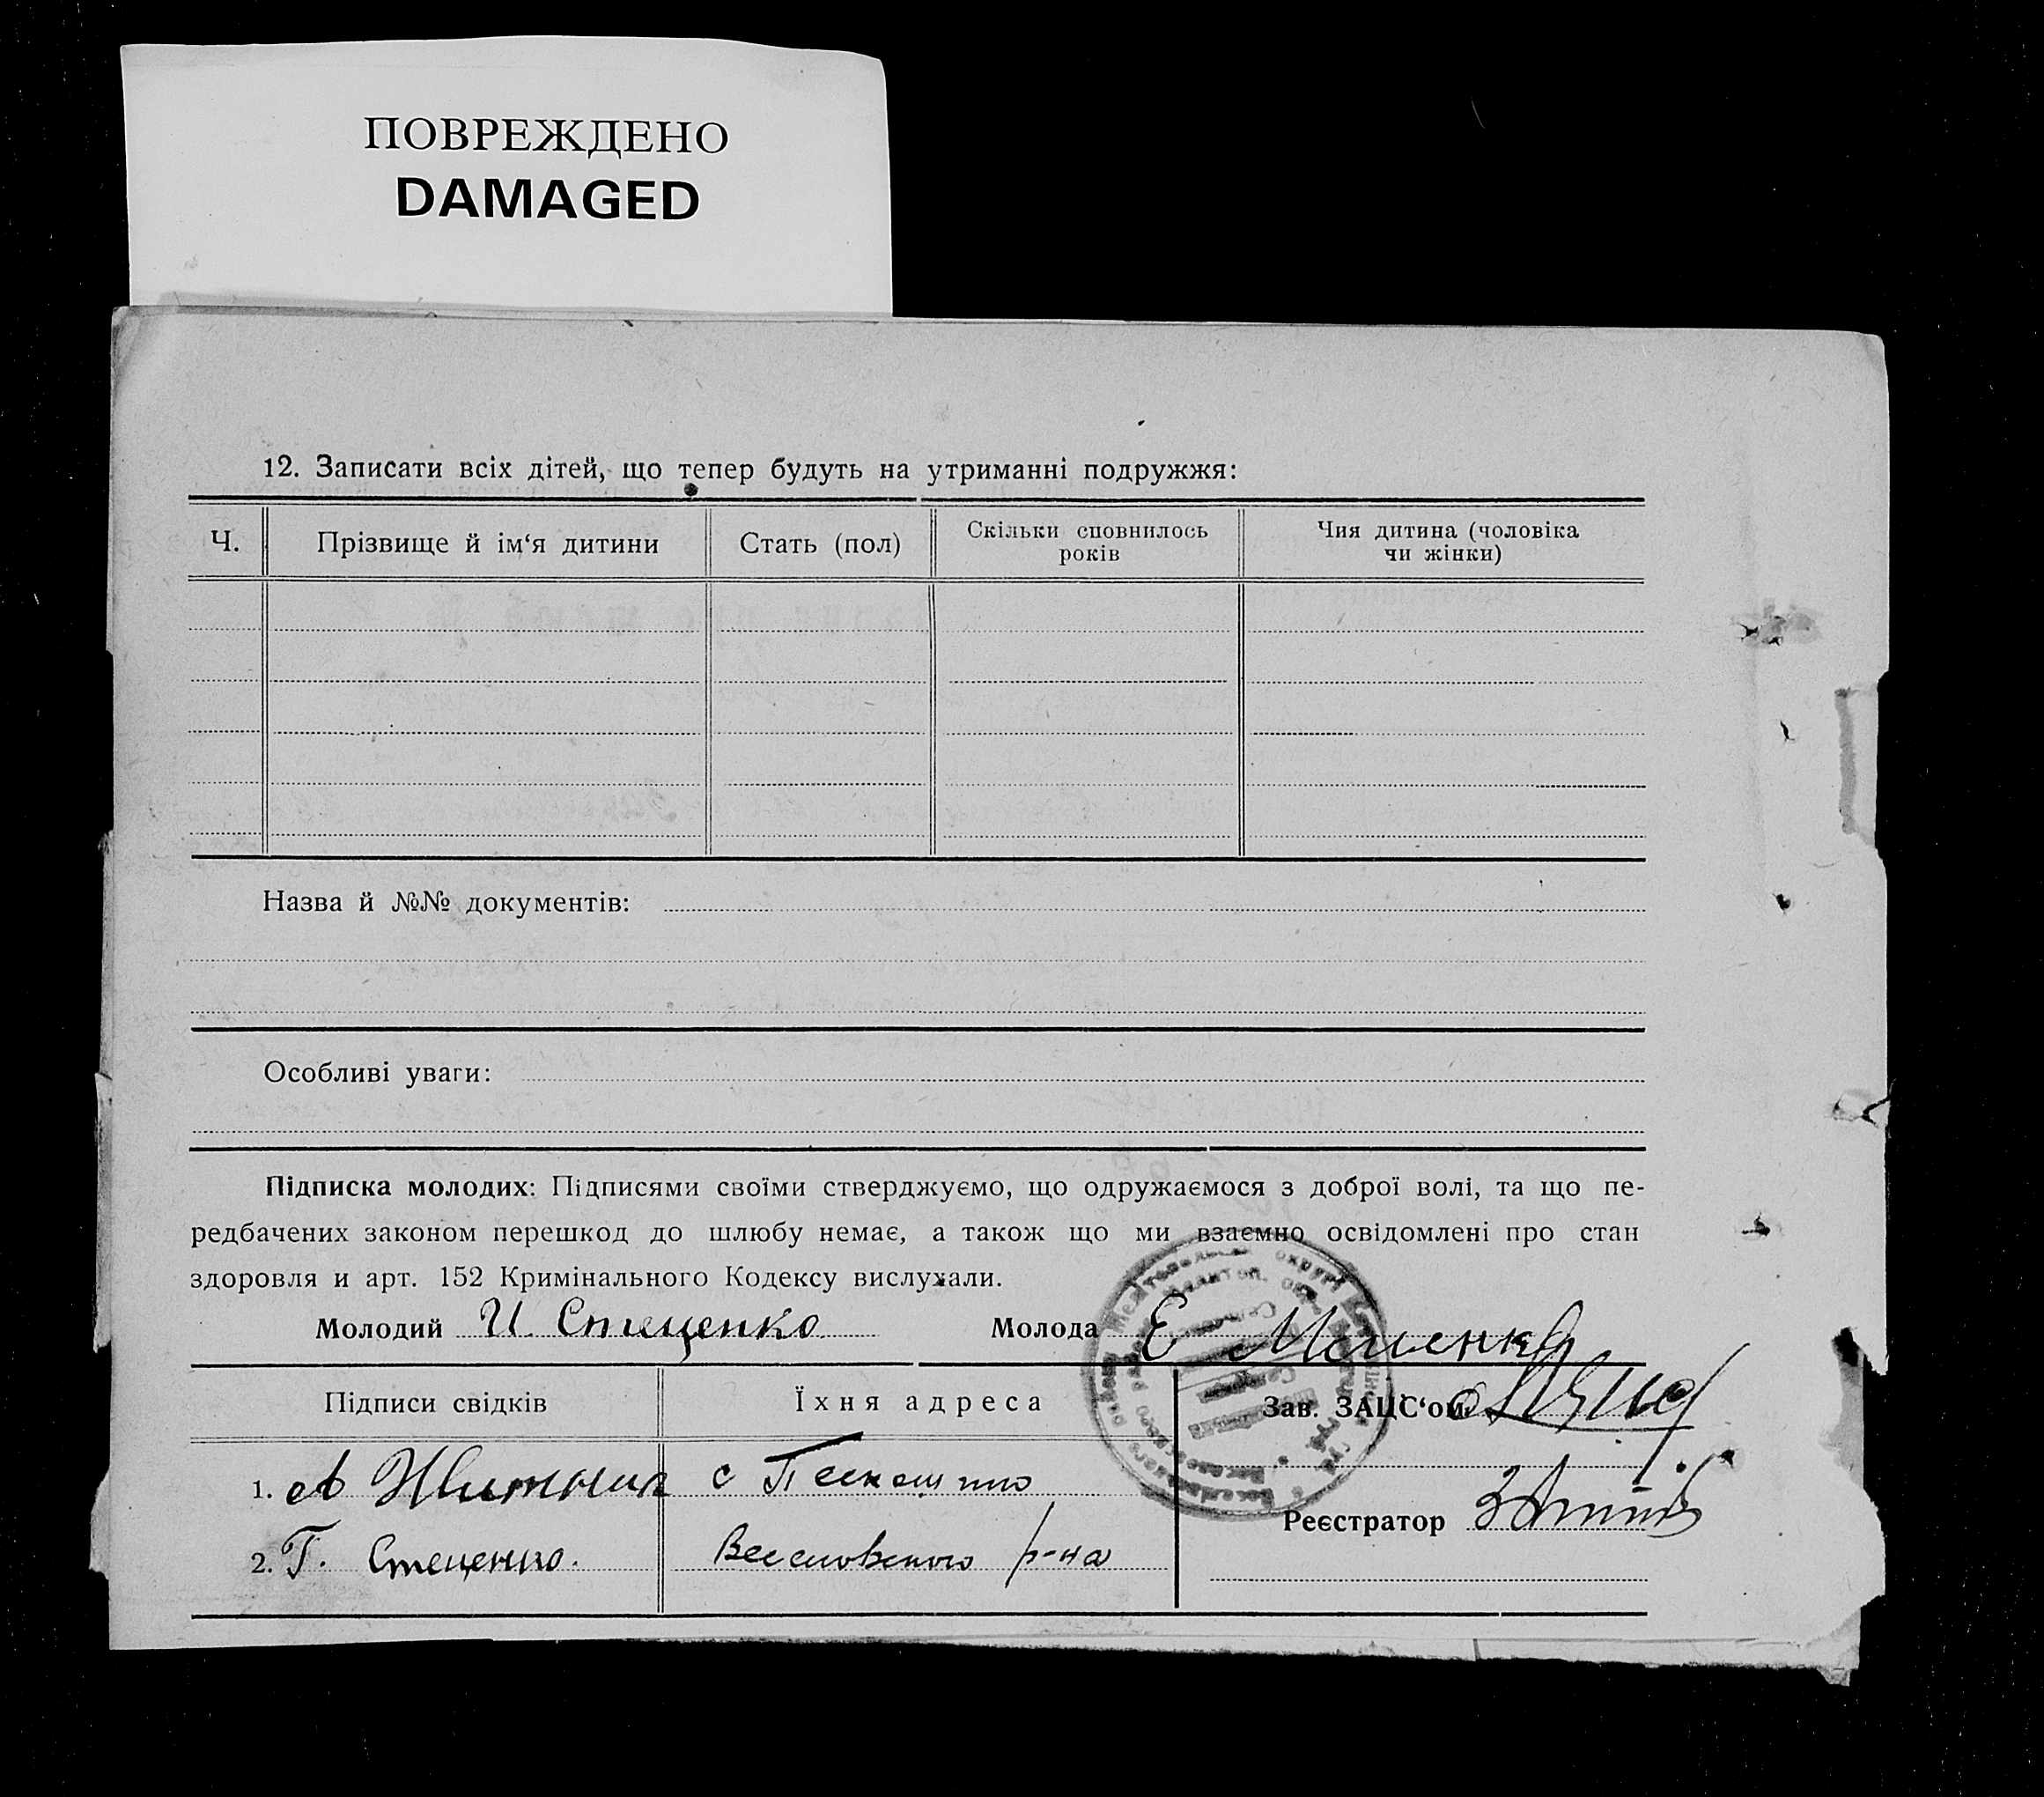 ПОВРЕЖДЕНО
DAMAGED
12. Записати всіх дітей, що тепер будуть на утриманні подружжя:
Ч.
Прізвище й ім‘я дитини
Стать (пол)
Скільки сповнилось
років
Чия дитина (чоловіка
чи жінки)
Назва й №№ документів:
Особливі уваги:
Підписка молодих: Підписями своїми стверджуємо, що одружаємося з доброї волі, та що пе-
редбачених законом перешкод до шлюбу немає, а також що ми взаємно освідомлені про стан
здоровля и арт. 152 Кримінального Кодексу вислухали.
Молодий И. Стеценко Молода Е
Підписи свідків
Їхня адреса
Зав. ЗАЦС‘ом
1. А
с
2. Г. Стеценко.
Веселовского р-на
Реєстратор